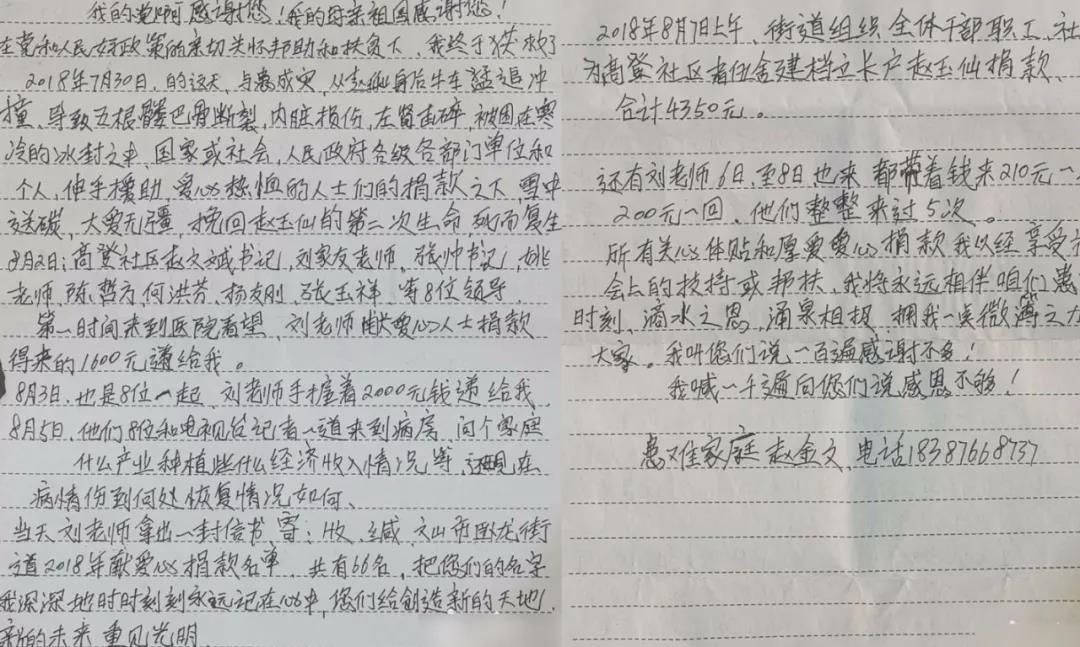 我的党啊感谢您！我的母亲祖国感谢您！
在党和人民好政策的亲切关怀帮助和扶贫下、我终于获救了
2018年7月30日、的这天、与患成灾、从赵仙身后牛车猛追冲
撞、导致五根髅巴骨断裂、内脏损伤、左肾击碎、被困在寒
冷的冰封之中、国家或社会、人民政府各级各部门单位和
个人、伸手援助、爱心热恤的人士们的捐款之下、雪中
送碳、大爱无疆、挽回赵玉仙的第二次生命、死而复生
8月2日：高登社区赵文斌书记、刘家友老师、张帅书记、姚
老师、陈哲方、何洪芬、杨友刚、张玉祥、等8位领导、
第一时间来到医院看望、刘老师献爱心人士捐款
得来的1600元递给我。
8月3日、也是8位一起、刘老师手握着2000元钱递给我
8月5日、他们8位和电视台记者一道来到病房、问个家庭
什么产业种植些什么经济收入情况等、还现在
病情伤到何处恢复情况如何、
当天刘老师拿出一封信书、写：收、缄、文山市卧龙街
道2018年献爱心捐款名单、共有66名、把您们的名字
我深深地时时刻刻永远记在心中、您们给创造新的天地、
新的未来、重见光明
2018年8月7日上午、街道组织全体干部职工、社
为高登社区者伍舍建档立卡户赵玉仙捐款、
合计4350元。
还有刘老师6日、至8日也来都带着钱来210元一
200元一回、他们整整来过5次。
所有关心体贴和厚爱爱心捐款我以经享受
会上的扶持或帮扶、我将永远相伴咱们患
时刻、滴水之恩、涌泉相报、拥我一点微薄之力
大家。我叫您们说一百遍感谢不多！
我喊一千遍向您们说感恩不够！
患难家庭赵金文、电话18387668737